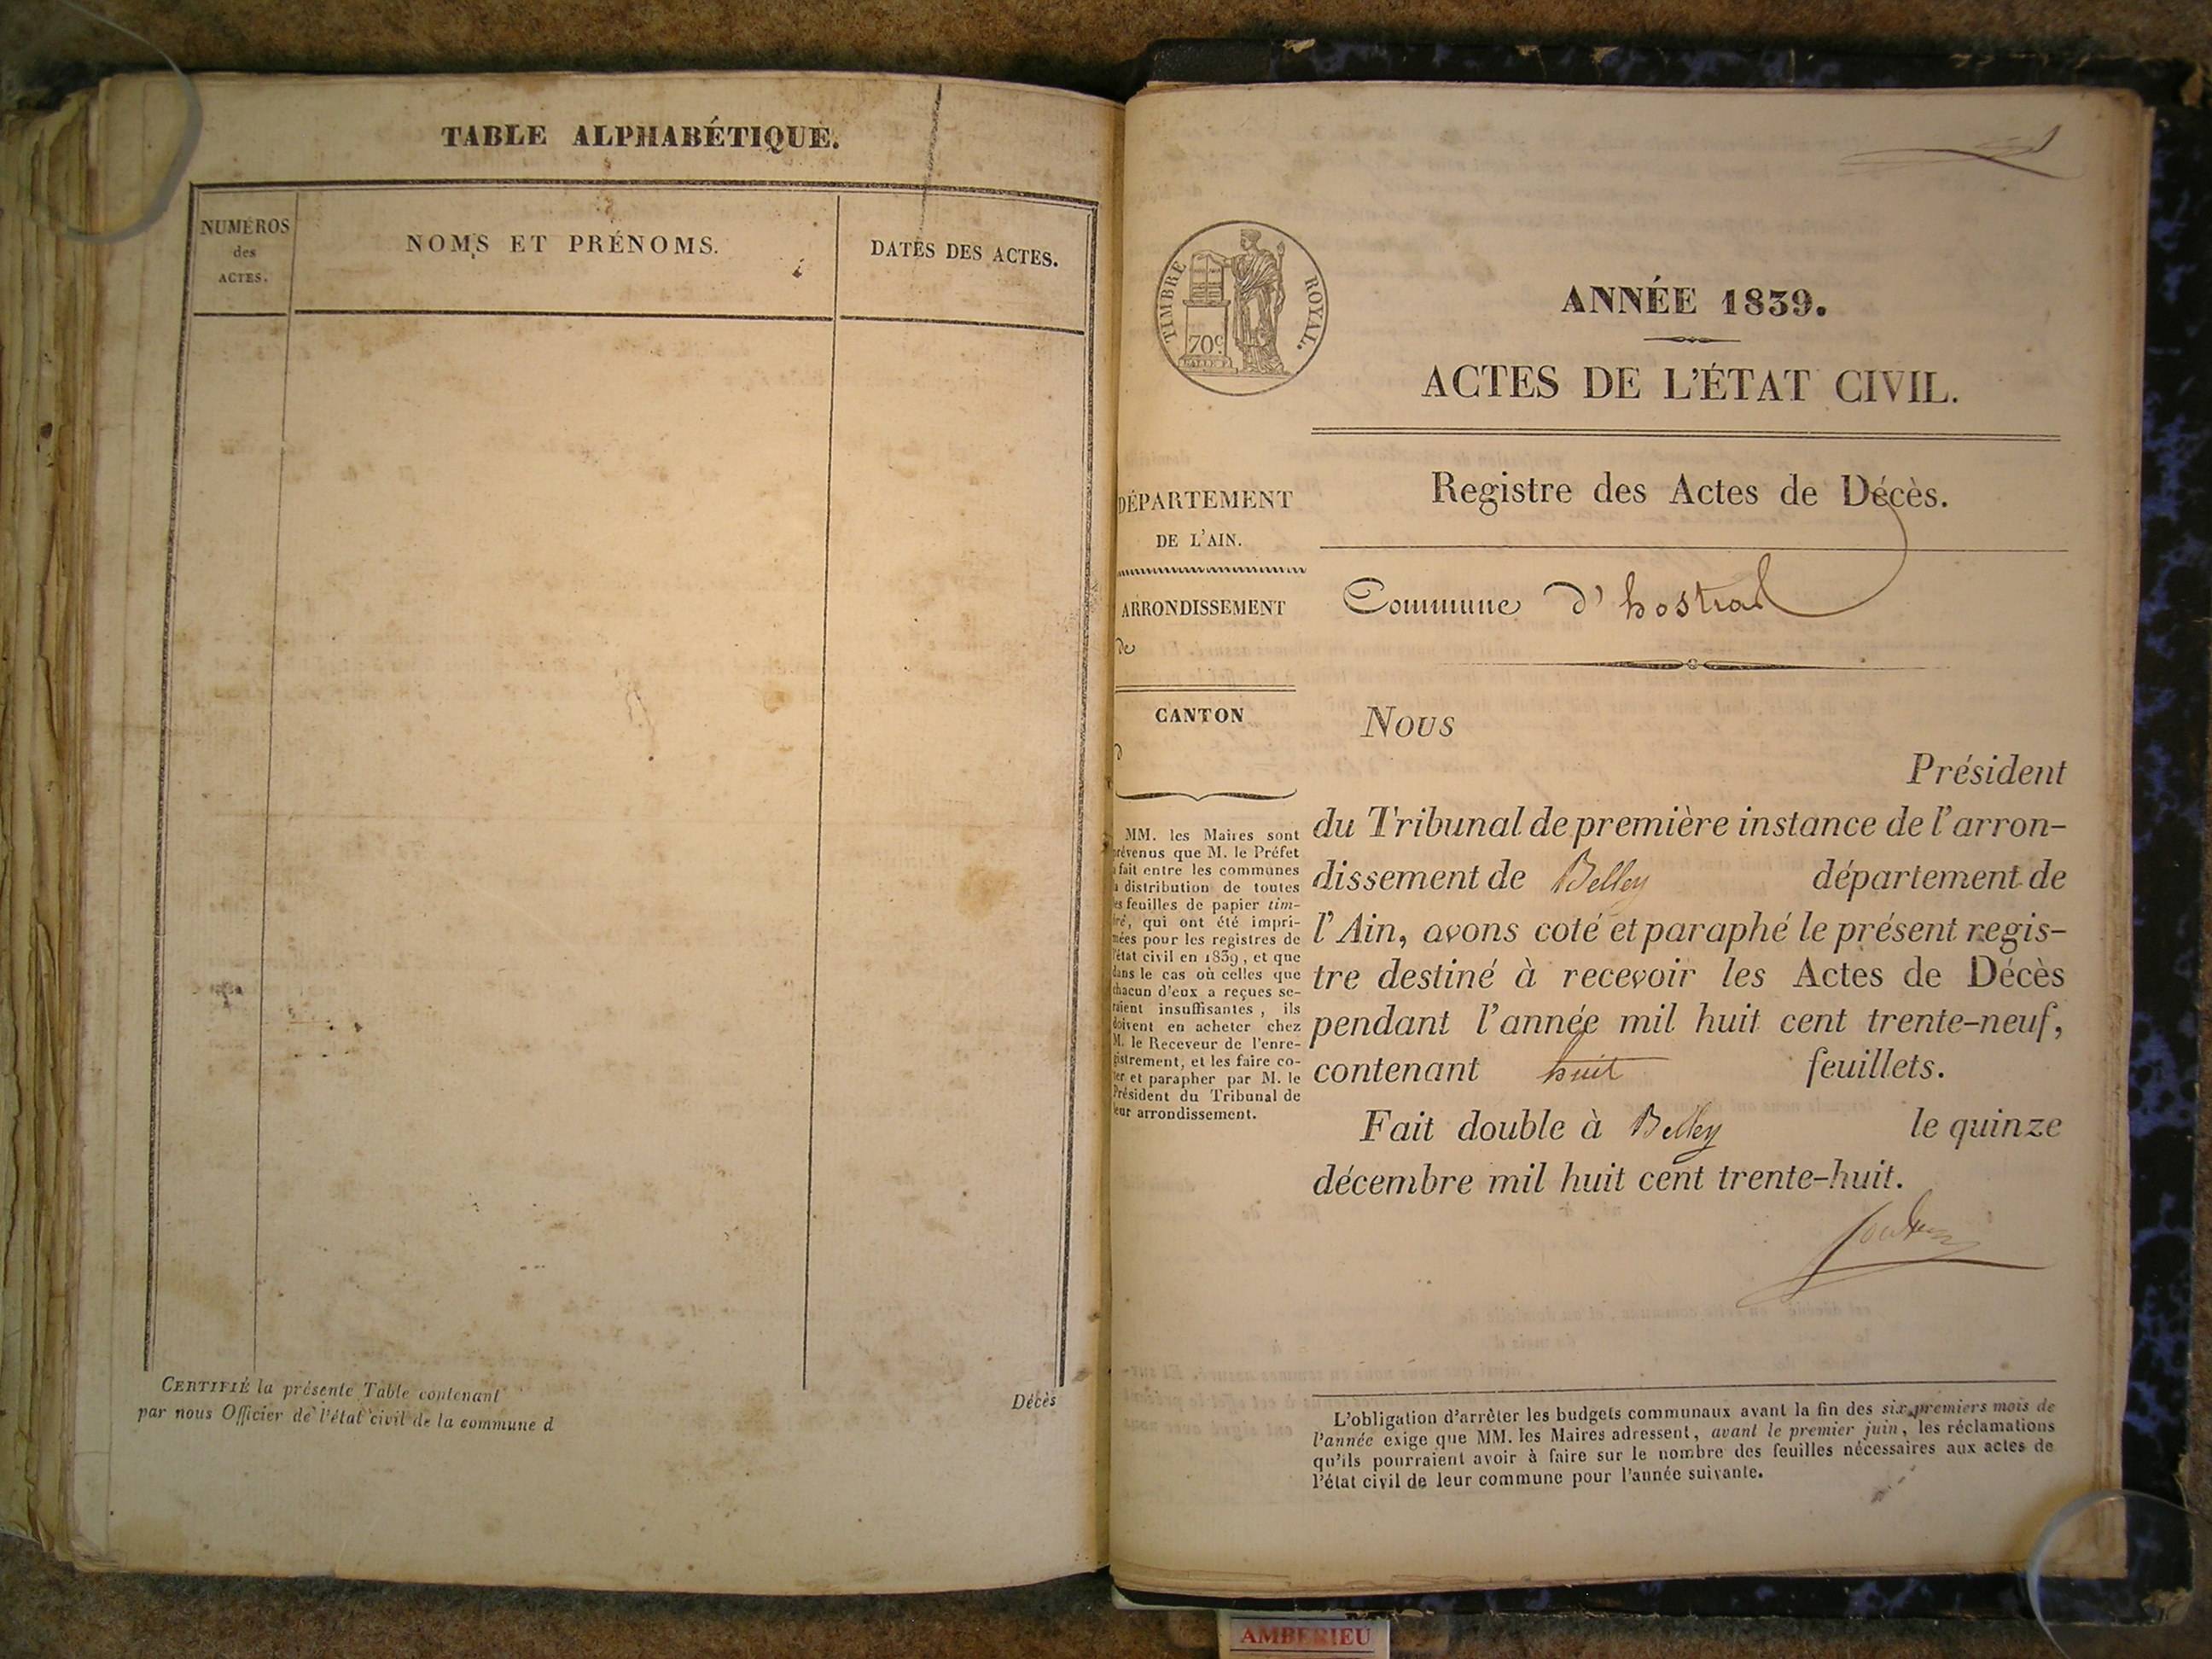 TABLE ALPHABÉTIQUE.
NUMÉROS
des
ACTES.
NOMS ET PRÉNOMS.
DATES DES ACTES.
CERTIFIÉ la présente Table contenant
Décès
par nous Officier de l'état civil de la commune d
1
TIMBRE ROYAL.
70c
ANNÉE 1839.
ACTES DE L'ÉTAT CIVIL.
DÉPARTEMENT
DE L'AIN.
ARRONDISSEMENT
de
CANTON
d
MM. les Maires sont
prévenus que M. le Préfet
a fait entre les communes
la distribution de toutes
les feuilles de papier tim-
bré, qui ont été impri-
mées pour les registres de
l'état civil en 1839, et que
dans le cas où celles que
chacun d'eux a reçues se-
raient insuffisantes, ils
doivent en acheter chez
M. le Receveur de l'enre-
gistrement, et les faire co-
ter et parapher par M. le
Président du Tribunal de
leur arrondissement.
Registre des Actes de Décès.
Commune d'hostral
Nous
Président
du Tribunal de première instance de l'arron-
dissement de Belley département de
l'Ain, avons coté et paraphé le présent regis-
tre destiné à recevoir les Actes de Décès
pendant l'année mil huit cent trente-neuf,
contenant huit feuillets.
Fait double à Belley le quinze
décembre mil huit cent trente-huit.
L'obligation d'arrêter les budgets communaux avant la fin des six premiers mois de
l'année exige que MM. les Maires adressent, avant le premier juin, les réclamations
qu'ils pourraient avoir à faire sur le nombre des feuilles nécessaires aux actes de
l'état civil de leur commune pour l'année suivante.
AMBERIEU